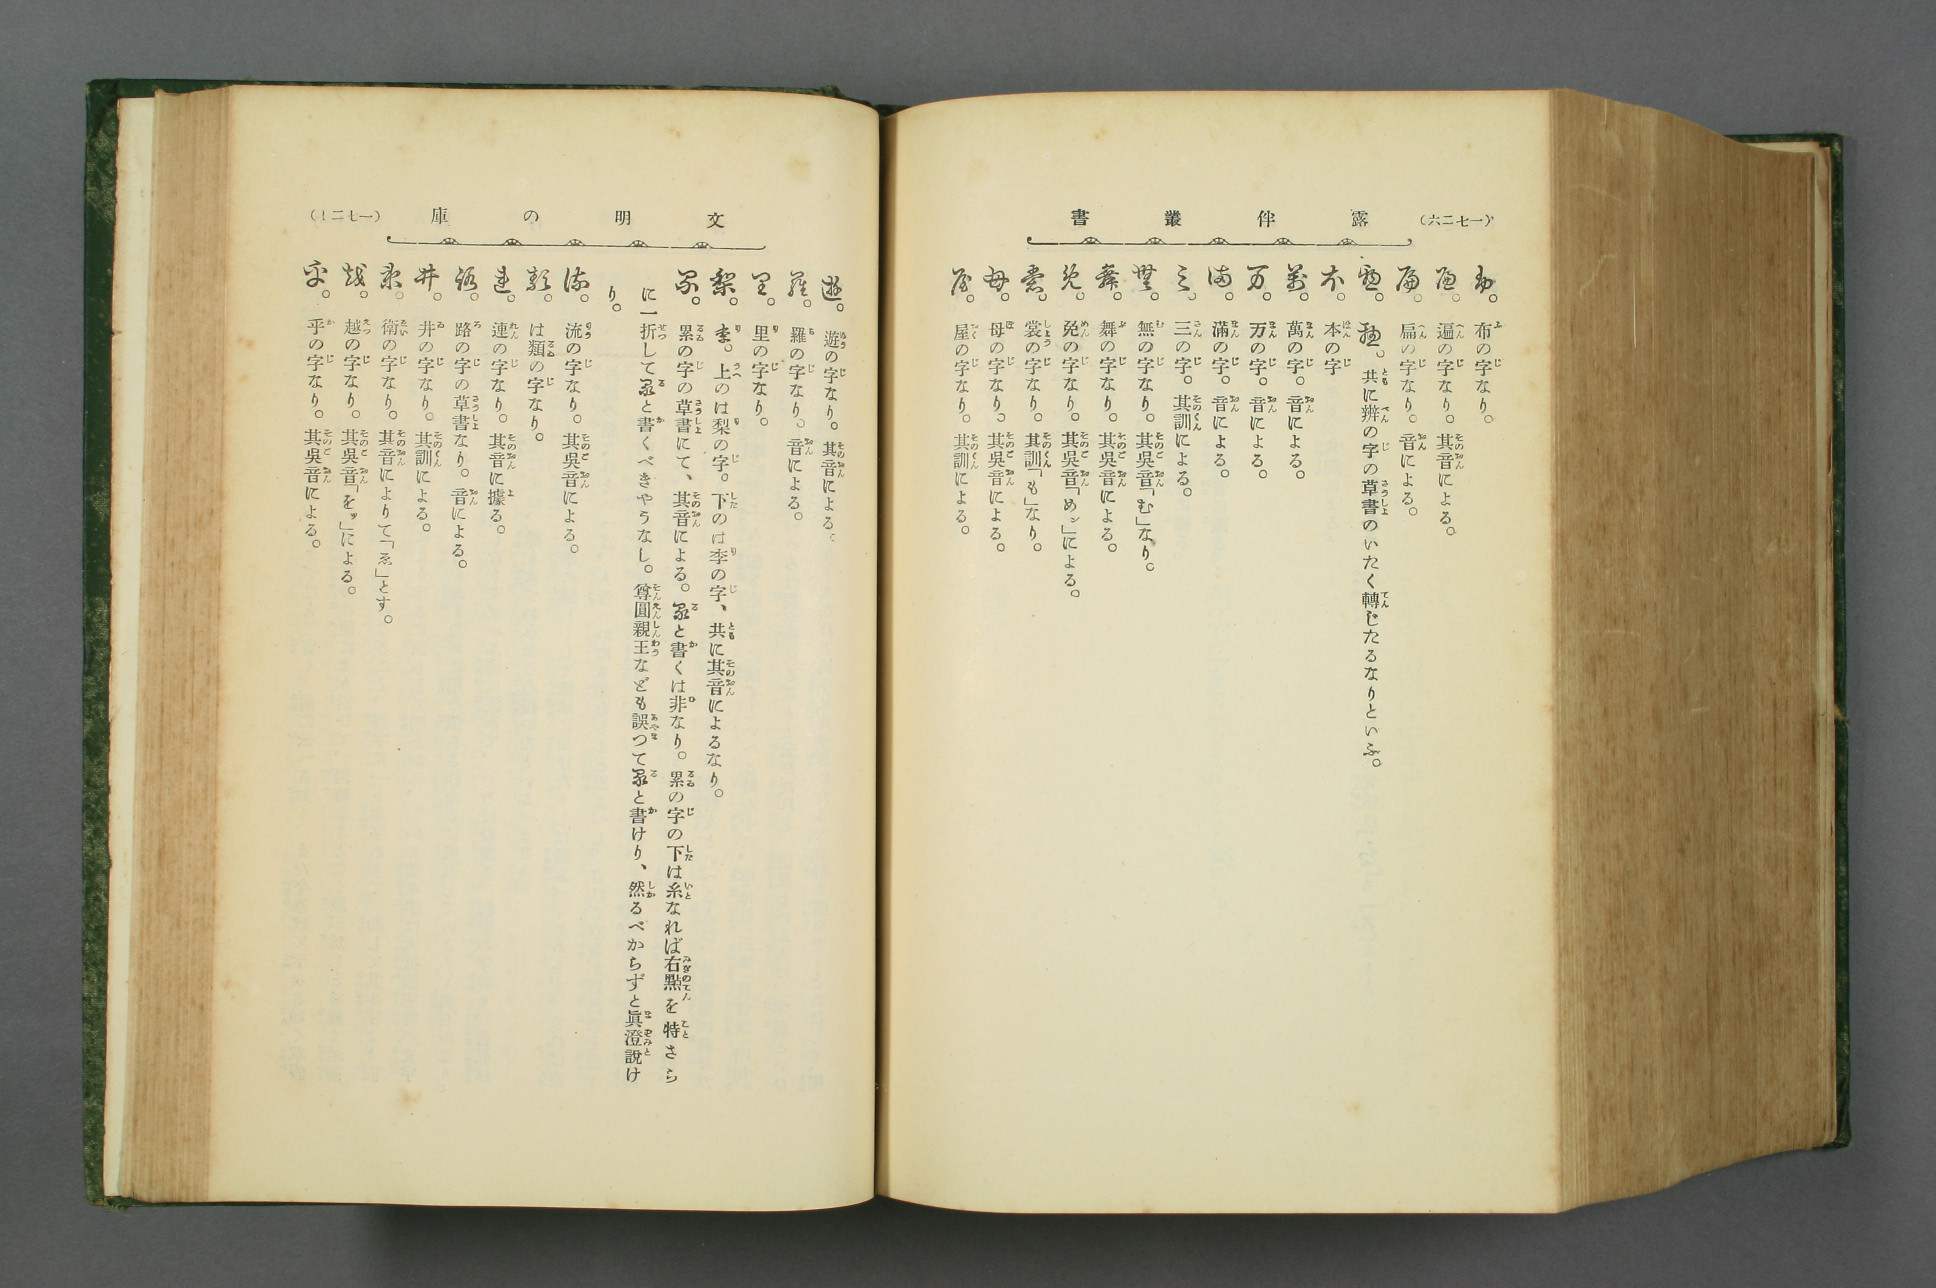 露伴叢書
(一七二六)
布の字なり。
遍の字なり。其音による。
扁の字なり。音による。
共に辨の字の草書のいたく轉じたるなりといふ。
本の字
萬の字。音による。
万の字。音による。
滿の字。音による。
三の字。其訓による。
無の字なり。其吳音「む」なり。
舞の字なり。其吳音による。
免の字なり。其吳音「めン」による。
裳の字なり。其訓「も」なり。
母の字なり。其吳音による。
屋の字なり。其訓による。
文明の庫
遊の字なり。其音による。
羅の字なり。音による。
里の字なり。
上のは梨の字。下のは李の字、共に其音によるなり。
累の字の草書にて、其音による。と書くは非なり。累の字の下は糸なれば右點を特さら
に一折して と書くべきやうなし。尊圓親王なども誤つて と書けり、然るべからずと眞澄說け
り。
流の字なり。其吳音による。
は類の字なり。
連の字なり。其音に據る。
路の字の草書なり。音による。
井の字なり。其訓による。
衛の字なり。其音によりて「ゑ」とす。
越の字なり。其吳音「をツ」による。
乎の字なり。其吳音による。